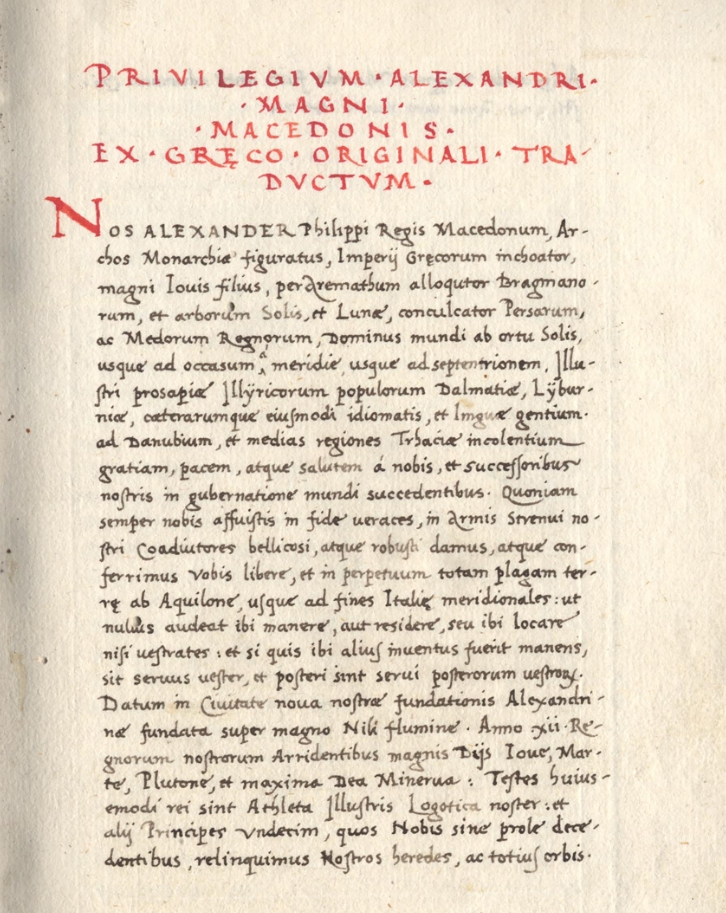 PRIVILEGIVM · ALEXANDRI ·
· MAGNI ·
· MACEDONIS ·
EX · GRĘCO · ORIGINALI · TRA-
DVCTVM ·
NOS ALEXANDER Philippi Regis Macedonum, Ar-
chos Monarchiæ figuratus, Imperij Gręcorum inchoator,
magni Iouis filius, per allocutor Bragmano-
rum, et arborum Solis, et Lunæ, conculcator Persarum,
ac Medorum Regnorum, Dominus mundi ab ortu Solis,
usque ad occasum, a meridie, usque ad septentrionem, Illu-
stri prosapiæ Illÿricorum populorum Dalmatiæ, Lÿbur-
niæ, cæterarumque eiusmodi idiomatis, et linguæ gentium.
ad Danubium, et medias regiones Trhaciæ incolentium
gratiam, pacem, atque salutem á nobis, et successoribus
nostris in gubernatione mundi succedentibus. Quoniam
semper nobis affuistis in fide veraces, in armis strenui no-
stri Coadiutores bellicosi, atque robusti damus, atque con-
ferrimus vobis libere, et in perpetuum totam plagam ter-
rę ab Aquilone, usque ad fines Italię meridionales: ut
nullus audeat ibi manere, aut residere, seu ibi locare
nisi vestrates: et si quis ibi alius inuentus fuerit manens,
sit seruus vester, et posteri sint serui posterorum vestroꝝ.
Datum in Ciuitate noua nostræ fundationis Alexandri-
næ fundata super magno Nili flumine. Anno .xii. Re-
gnorum nostrorum Arridentibus magnis Dijs Ioue, Mar-
te, Plutone, et maxima Dea Minerua: Testes huius-
emodi rei sint Athleta Illustris Logotica noster: et
alij Principes vndecim, quos Nobis sine prole dece-
dentibus, relinquimus Nostros heredes, ac totius orbis.